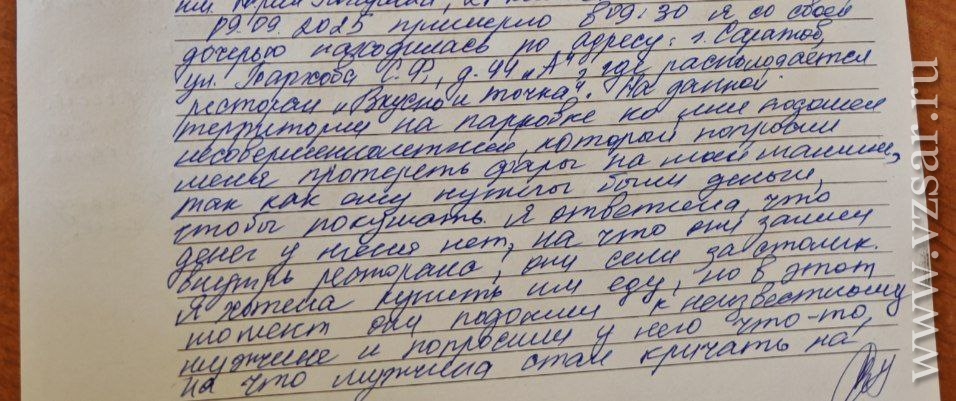 09.09.2025 примерно в 09:30 я со своей
дочерью находилась по адресу: г. Саратов,
ул. Тархова С.Ф., д. 44 „А", где располагается
ресторан „Вкусно и точка". На данной
территории на парковке ко мне подошел
несовершеннолетний, который попросил
меня протереть фары на моей машине,
так как ему нужны были деньги,
чтобы покушать. Я ответила, что
денег у меня нет, на что они зашли
внутрь ресторана, они сели за столик.
Я хотела купить им еду, но в этот
момент они подошли к неизвестному
мужчине и попросили у него что-то,
на что мужчина стал кричать на
www.vzsar.ru